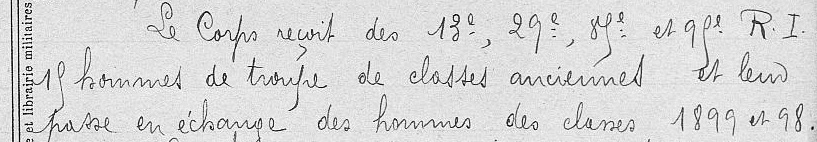 Le Corps reçoit des 13e, 29e, 85e et 95e R.I.
15 hommes de troupe de classes anciennes et leur
passe en échange des hommes des classes 1899 et 98.
e et librairie militaires